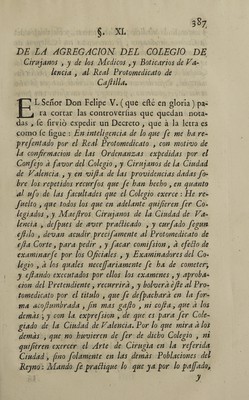 387
§. XI.
DE LA AGREGACION DEL COLEGIO DE
Cirujanos, y de los Medicos, y Boticarios de Va-
lencia, al Real Protomedicato de
Castilla.
EL Señor Don Felipe V. (que esté en gloria) pa-
ra cortar las controversias que quedan nota-
das, se sirvió expedir un Decreto, que à la letra es
como se sigue: En inteligencia de lo que se me ha re-
presentado por el Real Protomedicato, con motivo de
la confirmacion de las Ordenanzas expedidas por el
Consejo à favor del Colegio, y Cirujanos de la Ciudad
de Valencia, y en vista de las providencias dadas so-
bre los repetidos recursos que se han hecho, en quanto
al uso de las facultades que el Colegio exerce: He re-
suelto, que todos los que en adelante quisieren ser Co-
legiados, y Maestros Cirujanos de la Ciudad de Va-
lencia, despues de aver practicado, y cursado segun
estilo, devan acudir precisamente al Protomedicato de
esta Corte, para pedir, y sacar comision, à efecto de
examinarse por los Oficiales, y Examinadores del Co-
legio, à los quales necessariamente se ha de cometer,
y estando executados por ellos los examenes, y aproba-
cion del Pretendiente, recurrirà, y bolverà éste al Pro-
tomedicato por el titulo, que se despacharà en la for-
ma acostumbrada, sin mas gasto, ni costa, que à los
demàs, y con la expression, de que es para ser Cole-
giado de la Ciudad de Valencia. Por lo que mira à los
demàs, que no huvieren de ser de dicho Colegio, ni
quisieren exercer el Arte de Cirugia en la referida
Ciudad, sino solamente en las demàs Poblaciones del
Reyno: Mando se practique lo que ya por lo passado,
y